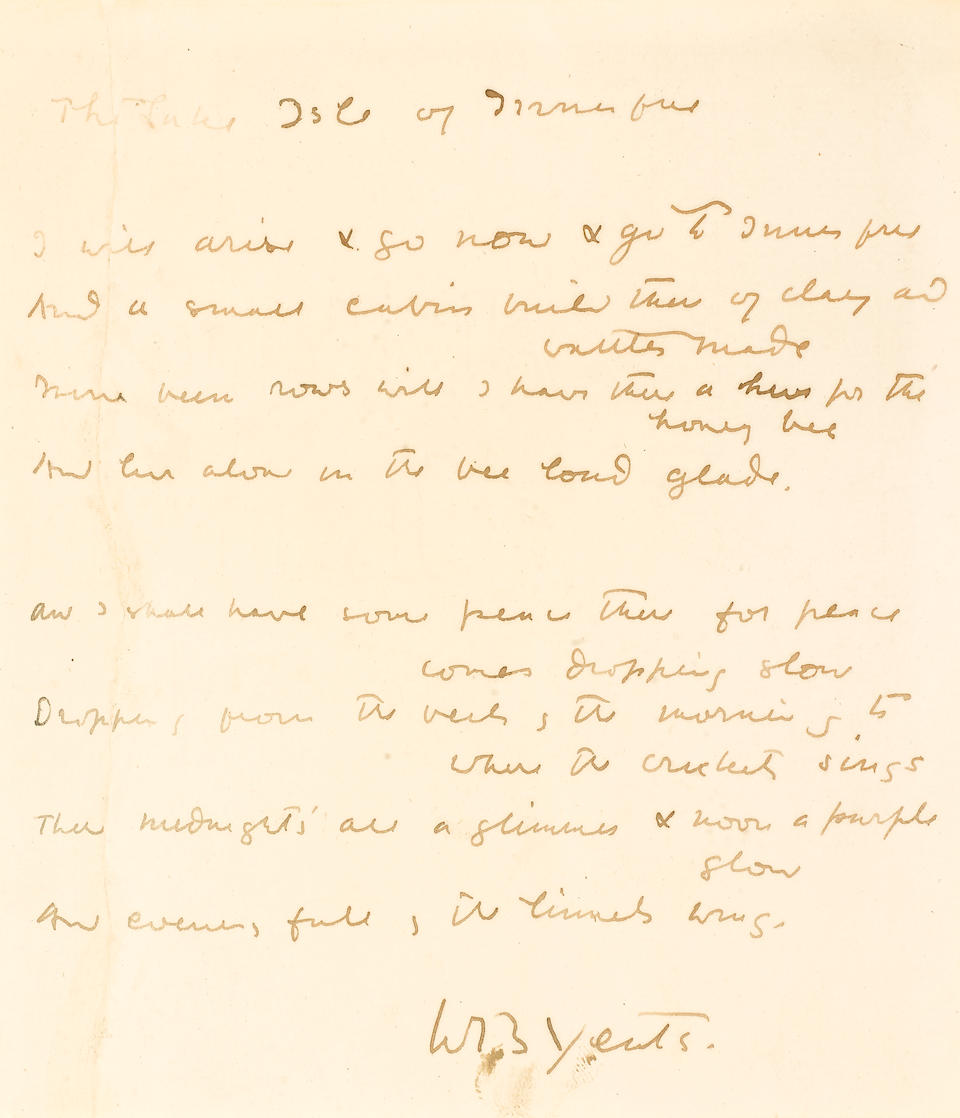 The Lake Isle of Innisfree
I will arise & go now & go to Innisfree
And a small cabin build there of clay and
wattles made
Nine bean rows will I have there a hive for the
honey bee
And live alone in the bee loud glade.
And I shall have some peace there for peace
comes dropping slow
Dropping from the veils of the morning to
where the crickets sings
There midnight's all a glimmer & noon a purple
glow
And evening full of the linnets wings.
WB Yeats.